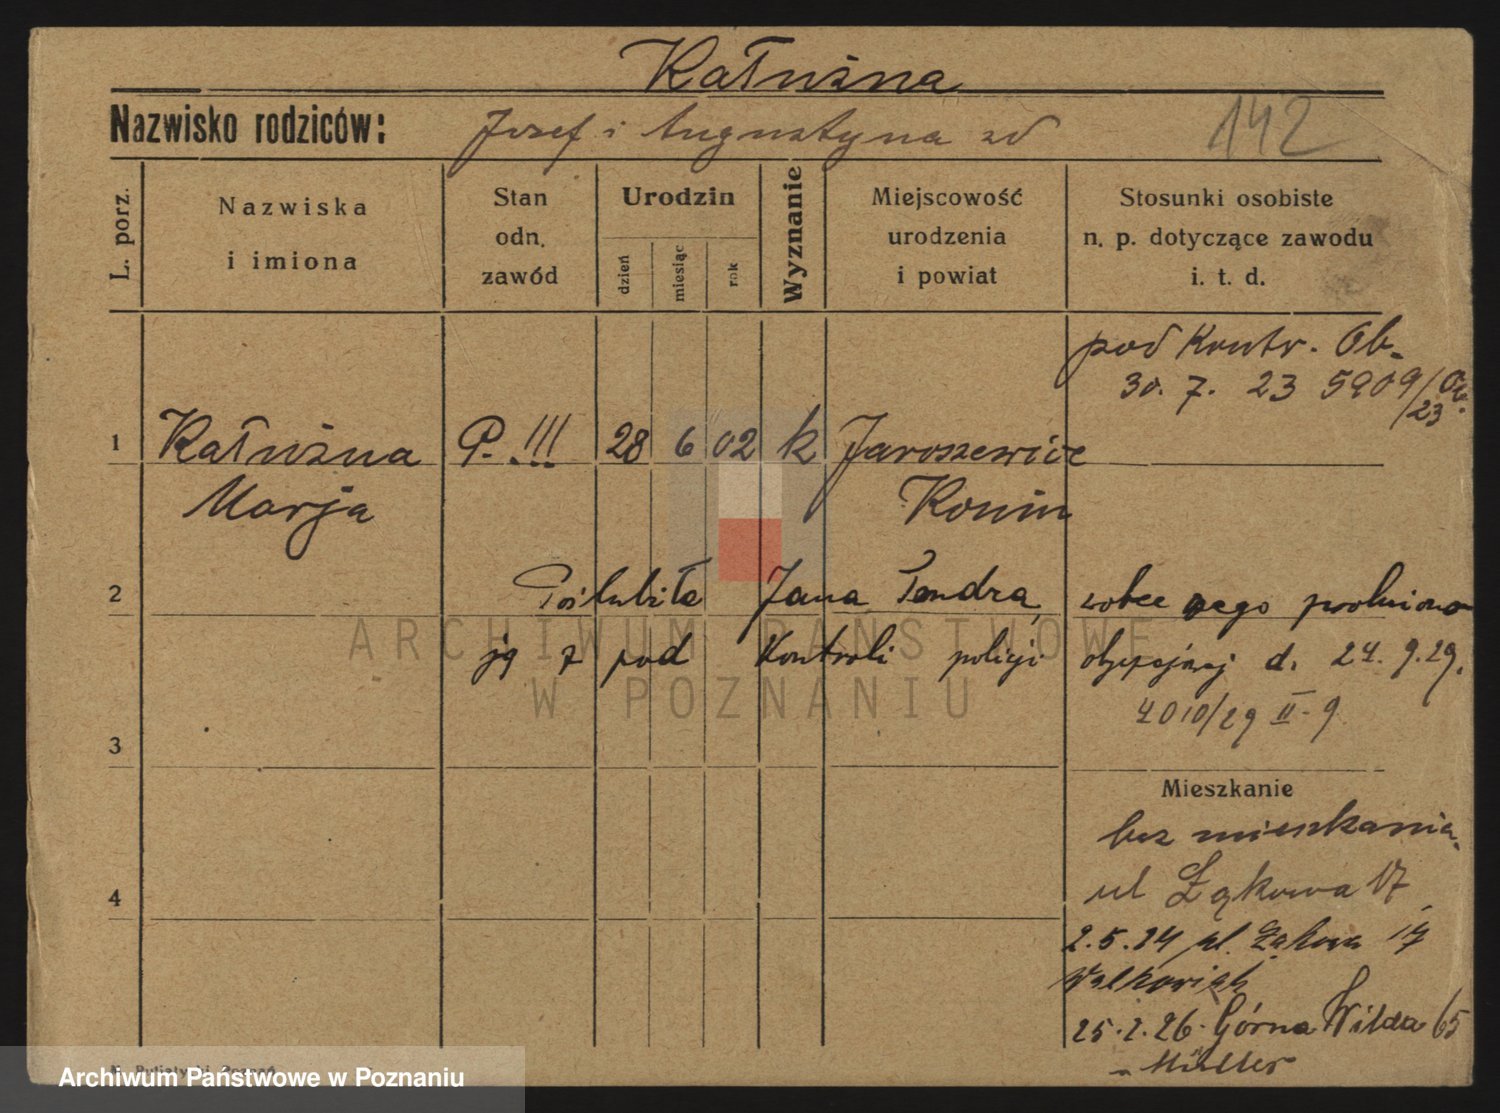 Kałużna
142
Nazwisko rodziców: Józef i Augustyna zd
L. porz.
Nazwiska
i imiona
Stan
odn.
zawód
Urodzin
dzień
miesiąc
rok
Wyznanie
Miejscowość
urodzenia
i powiat
Stosunki osobiste
n. p. dotyczące zawodu
i. t. d.
pod Kontr. Ob.
30. 7. 23 5909/Ob.
/23
1 Kałużna P. !!! 28 6 02 k Jaroszewice
Marja Konin
2 Poślubiła Jana Pendra, wobec czego zwolniono
ją z pod Kontroli policji obyczajowej d. 24. 9. 29.
4010/29 II-9
3
Mieszkanie
bez mieszkania.
4 ul Łąkowa 17
2.5.24 ul. Łąkowa 17
Walkowiak
25.2.26. Górna Wilda 65
Müller
ARCHIWUM PAŃSTWOWE
W POZNANIU
Archiwum Państwowe w Poznaniu